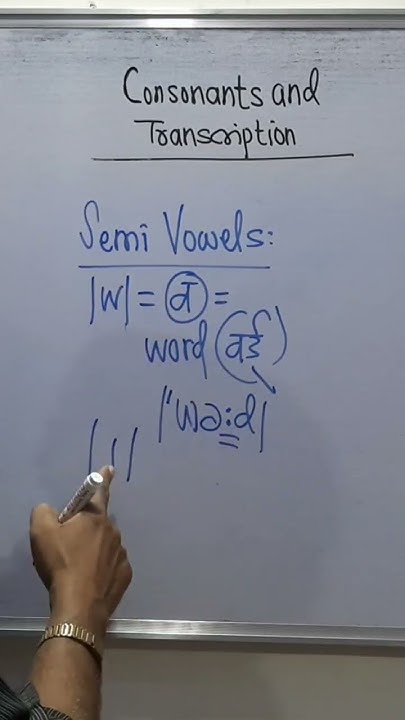 Consonants and
Transcription
Semi Vowels:
|w| = व =
word (वर्ड)
|'wə:d|